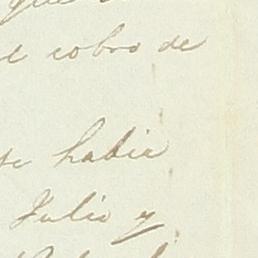 que
el cobro de
se habia
Julio y